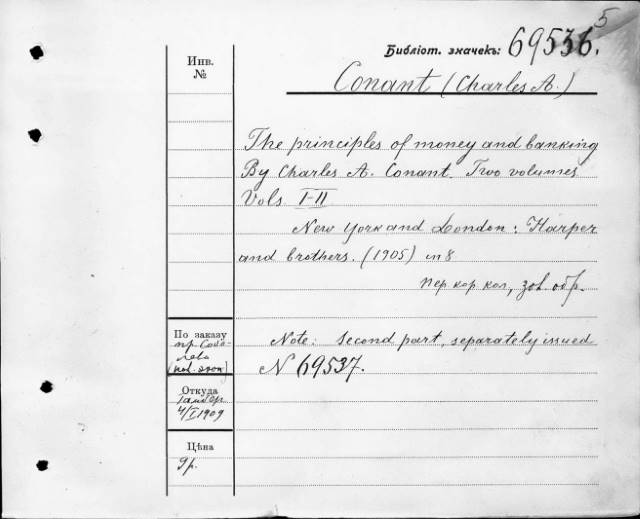 5
Библіот. значекъ: 69536.
Инв.
№
Conant (Charles A.)
The principles of money and banking
By Charles A. Conant. Two volumes
Vols I-II
New York and London: Harper
and brothers. (1905) in 8
пер кор кол, зол. обр.
По заказу
пр. Собо-
лева
Note: Second part, separately issued
N 69537.
Откуда
4/I 1909
Цѣна
9 р.